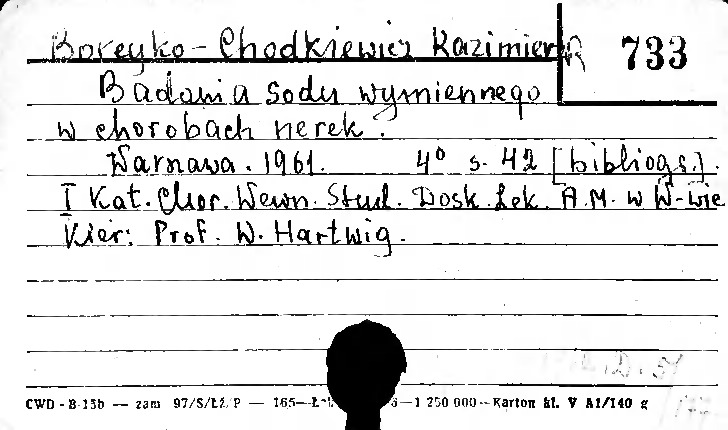 Boreyko-Chodkiewicz Kazimierz R 733
Badania sodu wymiennego
w chorobach nerek.
Warszawa. 1961. 4° s. 42 [bibliogr.].
I Kat. Chor. Wewn. Stud. Dosk. Lek. A.M. w W-wie
Kier: Prof. W. Hartwig.
CWD - B-15b — zam 97/S/Łź/P — 165— —1 250 000 — Karton kl. V A1/140 g